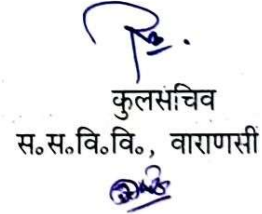 कुलसचिव
स॰स॰वि॰वि॰, वाराणसी